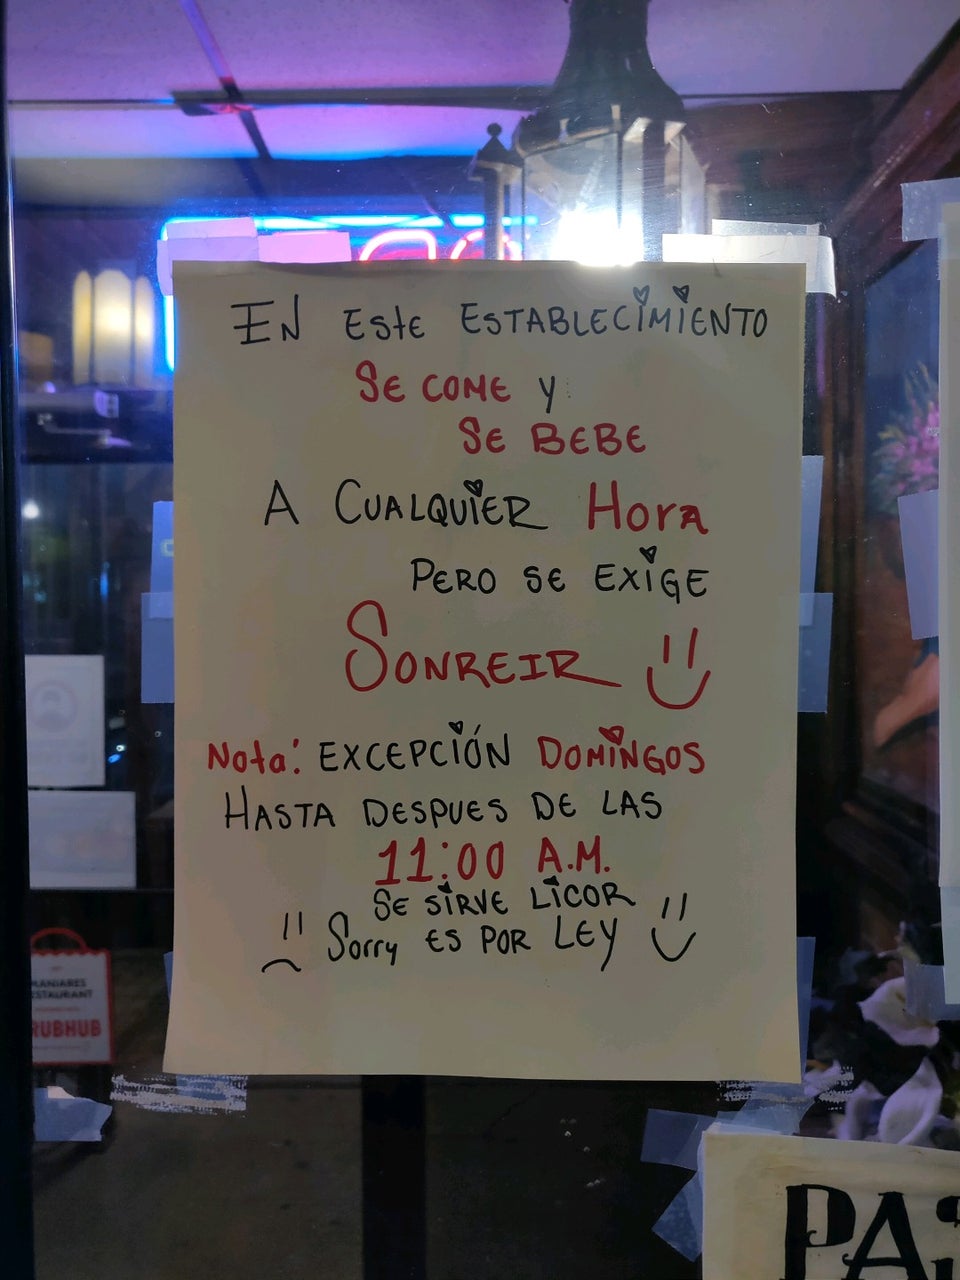 EN Este ESTABLECIMIENTO
SE COME Y
SE BEBE
A CUALQUIER HorA
PERO SE EXIGE
SONREIR
Nota: EXCEPCIÓN DOMINGOS
HASTA DESPUES DE LAS
11:00 A.M.
SE SIRVE LICOR
Sorry ES POR LEY
MANJARES
RESTAURANT
RUBHUB